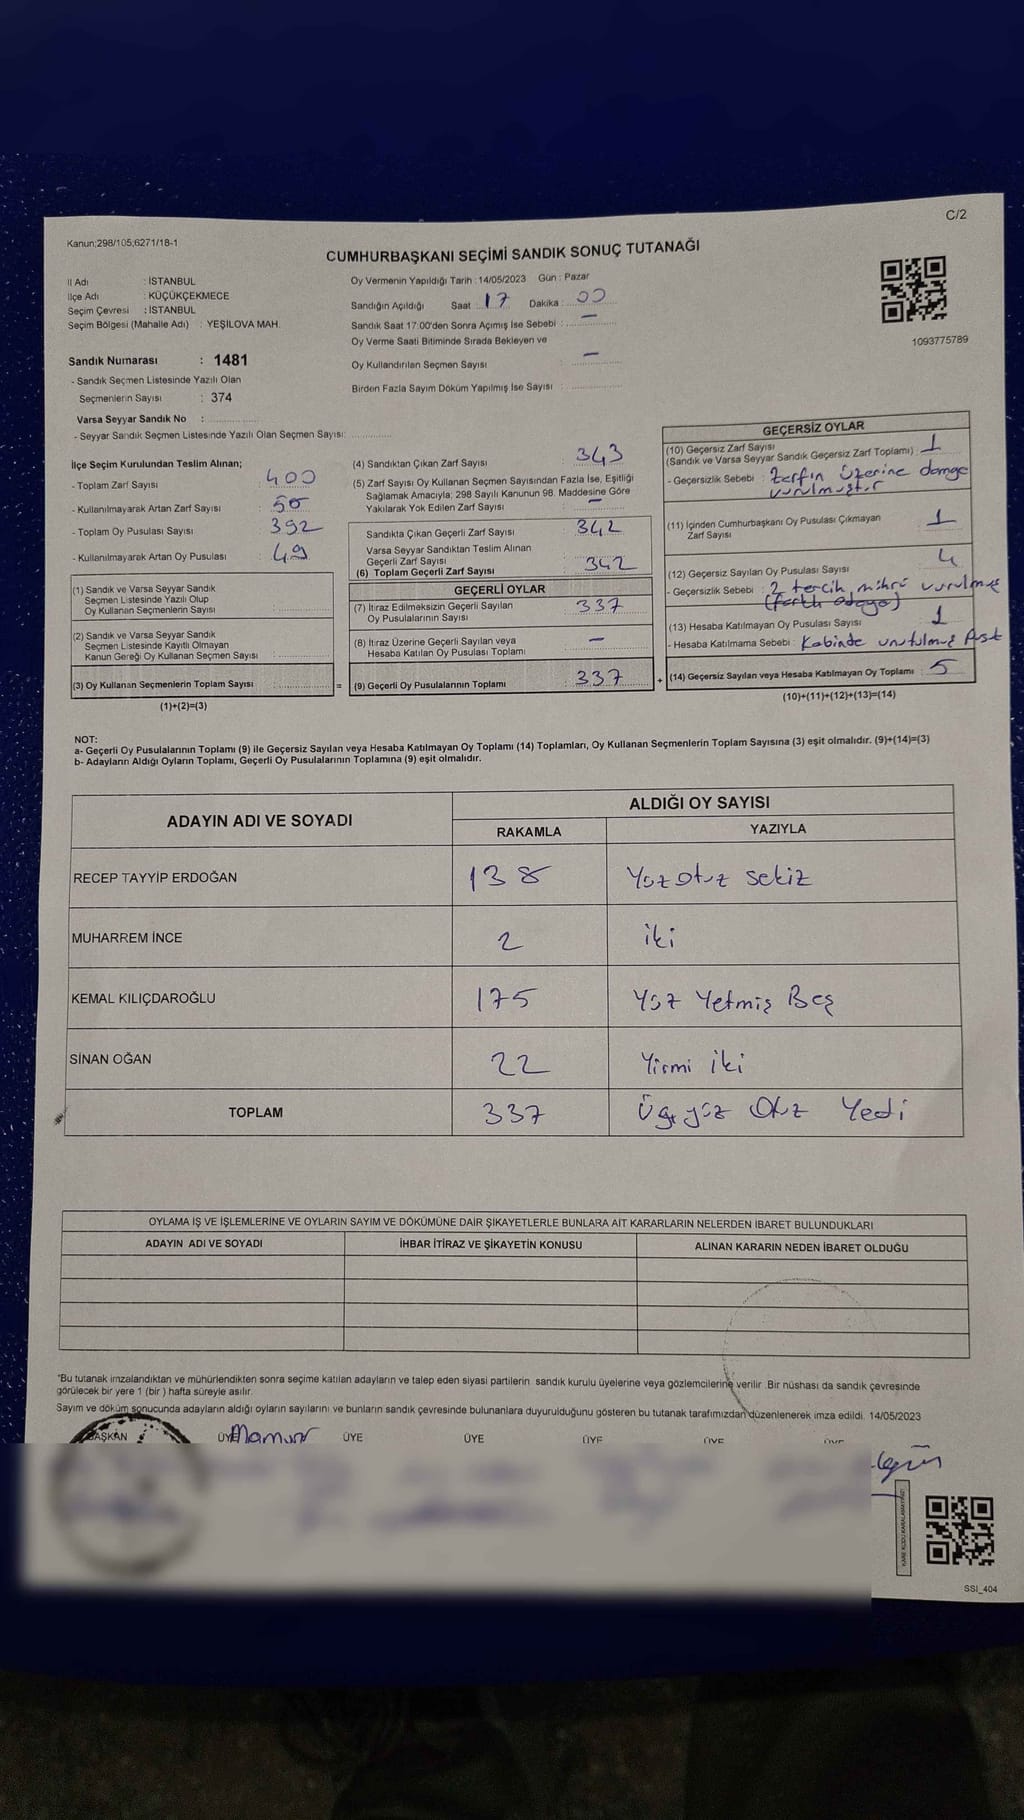 C/2
Kanun;298/105,6271/18-1
CUMHURBAŞKANI SEÇİMİ SANDIK SONUÇ TUTANAĞI
İl Adı : İSTANBUL
İlçe Adı : KÜÇÜKÇEKMECE
Seçim Çevresi : İSTANBUL
Seçim Bölgesi (Mahalle Adı) : YEŞİLOVA MAH.
Sandık Numarası : 1481
- Sandık Seçmen Listesinde Yazılı Olan
Seçmenlerin Sayısı : 374
Varsa Seyyar Sandık No :
- Seyyar Sandık Seçmen Listesinde Yazılı Olan Seçmen Sayısı:
Oy Vermenin Yapıldığı Tarih : 14/05/2023 Gün : Pazar
Sandığın Açıldığı Saat 17 Dakika : 00
Sandık Saat 17:00'den Sonra Açımış İse Sebebi : -
Oy Verme Saati Bitiminde Sırada Bekleyen ve
Oy Kullandırılan Seçmen Sayısı : -
Birden Fazla Sayım Döküm Yapılmış İse Sayısı :
1093775789
İlçe Seçim Kurulundan Teslim Alınan;
- Toplam Zarf Sayısı : 400
- Kullanılmayarak Artan Zarf Sayısı : 50
- Toplam Oy Pusulası Sayısı : 392
- Kullanılmayarak Artan Oy Pusulası : 49
(1) Sandık ve Varsa Seyyar Sandık
Seçmen Listesinde Yazılı Olup
Oy Kullanan Seçmenlerin Sayısı :
(2) Sandık ve Varsa Seyyar Sandık
Seçmen Listesinde Kayıtlı Olmayan
Kanun Gereği Oy Kullanan Seçmen Sayısı :
(3) Oy Kullanan Seçmenlerin Toplam Sayısı : =
(1)+(2)=(3)
(4) Sandıktan Çıkan Zarf Sayısı : 343
(5) Zarf Sayısı Oy Kullanan Seçmen Sayısından Fazla İse, Eşitliği
Sağlamak Amacıyla; 298 Sayılı Kanunun 98. Maddesine Göre
Yakılarak Yok Edilen Zarf Sayısı : -
Sandıkta Çıkan Geçerli Zarf Sayısı : 342
Varsa Seyyar Sandıktan Teslim Alınan
Geçerli Zarf Sayısı
(6) Toplam Geçerli Zarf Sayısı : 342
GEÇERLİ OYLAR
(7) İtiraz Edilmeksizin Geçerli Sayılan
Oy Pusulalarının Sayısı : 337
(8) İtiraz Üzerine Geçerli Sayılan veya
Hesaba Katılan Oy Pusulası Toplamı : -
(9) Geçerli Oy Pusulalarının Toplamı : 337 +
GEÇERSİZ OYLAR
(10) Geçersiz Zarf Sayısı
(Sandık ve Varsa Seyyar Sandık Geçersiz Zarf Toplamı) : 1
- Geçersizlik Sebebi : zarfın üzerine damga
vurulmuştur
(11) İçinden Cumhurbaşkanı Oy Pusulası Çıkmayan
Zarf Sayısı : 1
(12) Geçersiz Sayılan Oy Pusulası Sayısı : 4
- Geçersizlik Sebebi : 2 tercih mührü vurulmuş
(farklı adaya)
(13) Hesaba Katılmayan Oy Pusulası Sayısı : 1
- Hesaba Katılmama Sebebi : Kabinde unutulmuş
(14) Geçersiz Sayılan veya Hesaba Katılmayan Oy Toplamı : 5
(10)+(11)+(12)+(13)=(14)
NOT:
a- Geçerli Oy Pusulalarının Toplamı (9) ile Geçersiz Sayılan veya Hesaba Katılmayan Oy Toplamı (14) Toplamları, Oy Kullanan Seçmenlerin Toplam Sayısına (3) eşit olmalıdır. (9)+(14)=(3)
b- Adayların Aldığı Oyların Toplamı, Geçerli Oy Pusulalarının Toplamına (9) eşit olmalıdır.
ADAYIN ADI VE SOYADI
ALDIĞI OY SAYISI
RAKAMLA YAZIYLA
RECEP TAYYİP ERDOĞAN 138 Yüz otuz sekiz
MUHARREM İNCE 2 iki
KEMAL KILIÇDAROĞLU 175 Yüz Yetmiş Beş
SİNAN OĞAN 22 Yirmi iki
TOPLAM 337 Üçyüz Otuz Yedi
OYLAMA İŞ VE İŞLEMLERİNE VE OYLARIN SAYIM VE DÖKÜMÜNE DAİR ŞİKAYETLERLE BUNLARA AİT KARARLARIN NELERDEN İBARET BULUNDUKLARI
ADAYIN ADI VE SOYADI İHBAR İTİRAZ VE ŞİKAYETİN KONUSU ALINAN KARARIN NEDEN İBARET OLDUĞU
*Bu tutanak imzalandıktan ve mühürlendikten sonra seçime katılan adayların ve talep eden siyasi partilerin sandık kurulu üyelerine veya gözlemcilerine verilir .Bir nüshası da sandık çevresinde
görülecek bir yere 1 (bir ) hafta süreyle asılır.
Sayım ve döküm sonucunda adayların aldığı oyların sayılarını ve bunların sandık çevresinde bulunanlara duyurulduğunu gösteren bu tutanak tarafımızdan düzenlenerek imza edildi. 14/05/2023
BAŞKAN ÜYE Mamur ÜYE ÜYE ÜYE ÜYE ÜYE
SSI_404